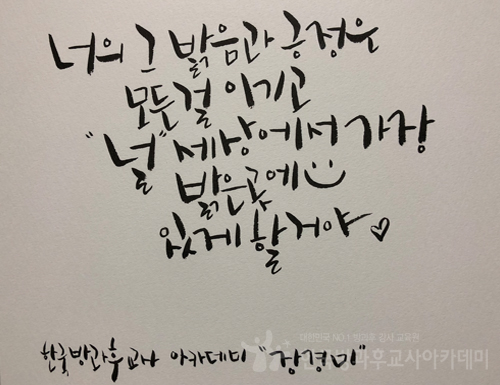 너의 그 밝음과 긍정은
모든걸 이기고
"널" 세상에서 가장
밝은곳에
있게 할거야
한국방과후교사 아카데미 "장경미"
대한민국 NO.1 방과후 강사 교육원
한국방과후교사아카데미